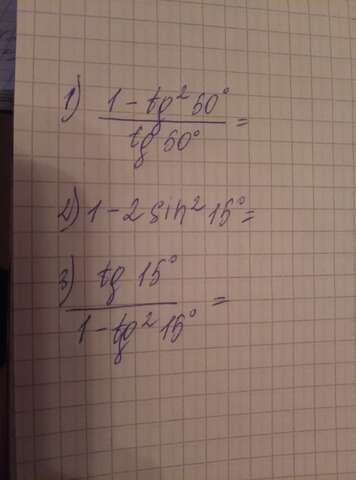 1) 1 - tg² 60° / tg 60° =
2) 1 - 2 sin² 15° =
3) tg 15° / 1 - tg² 15° =